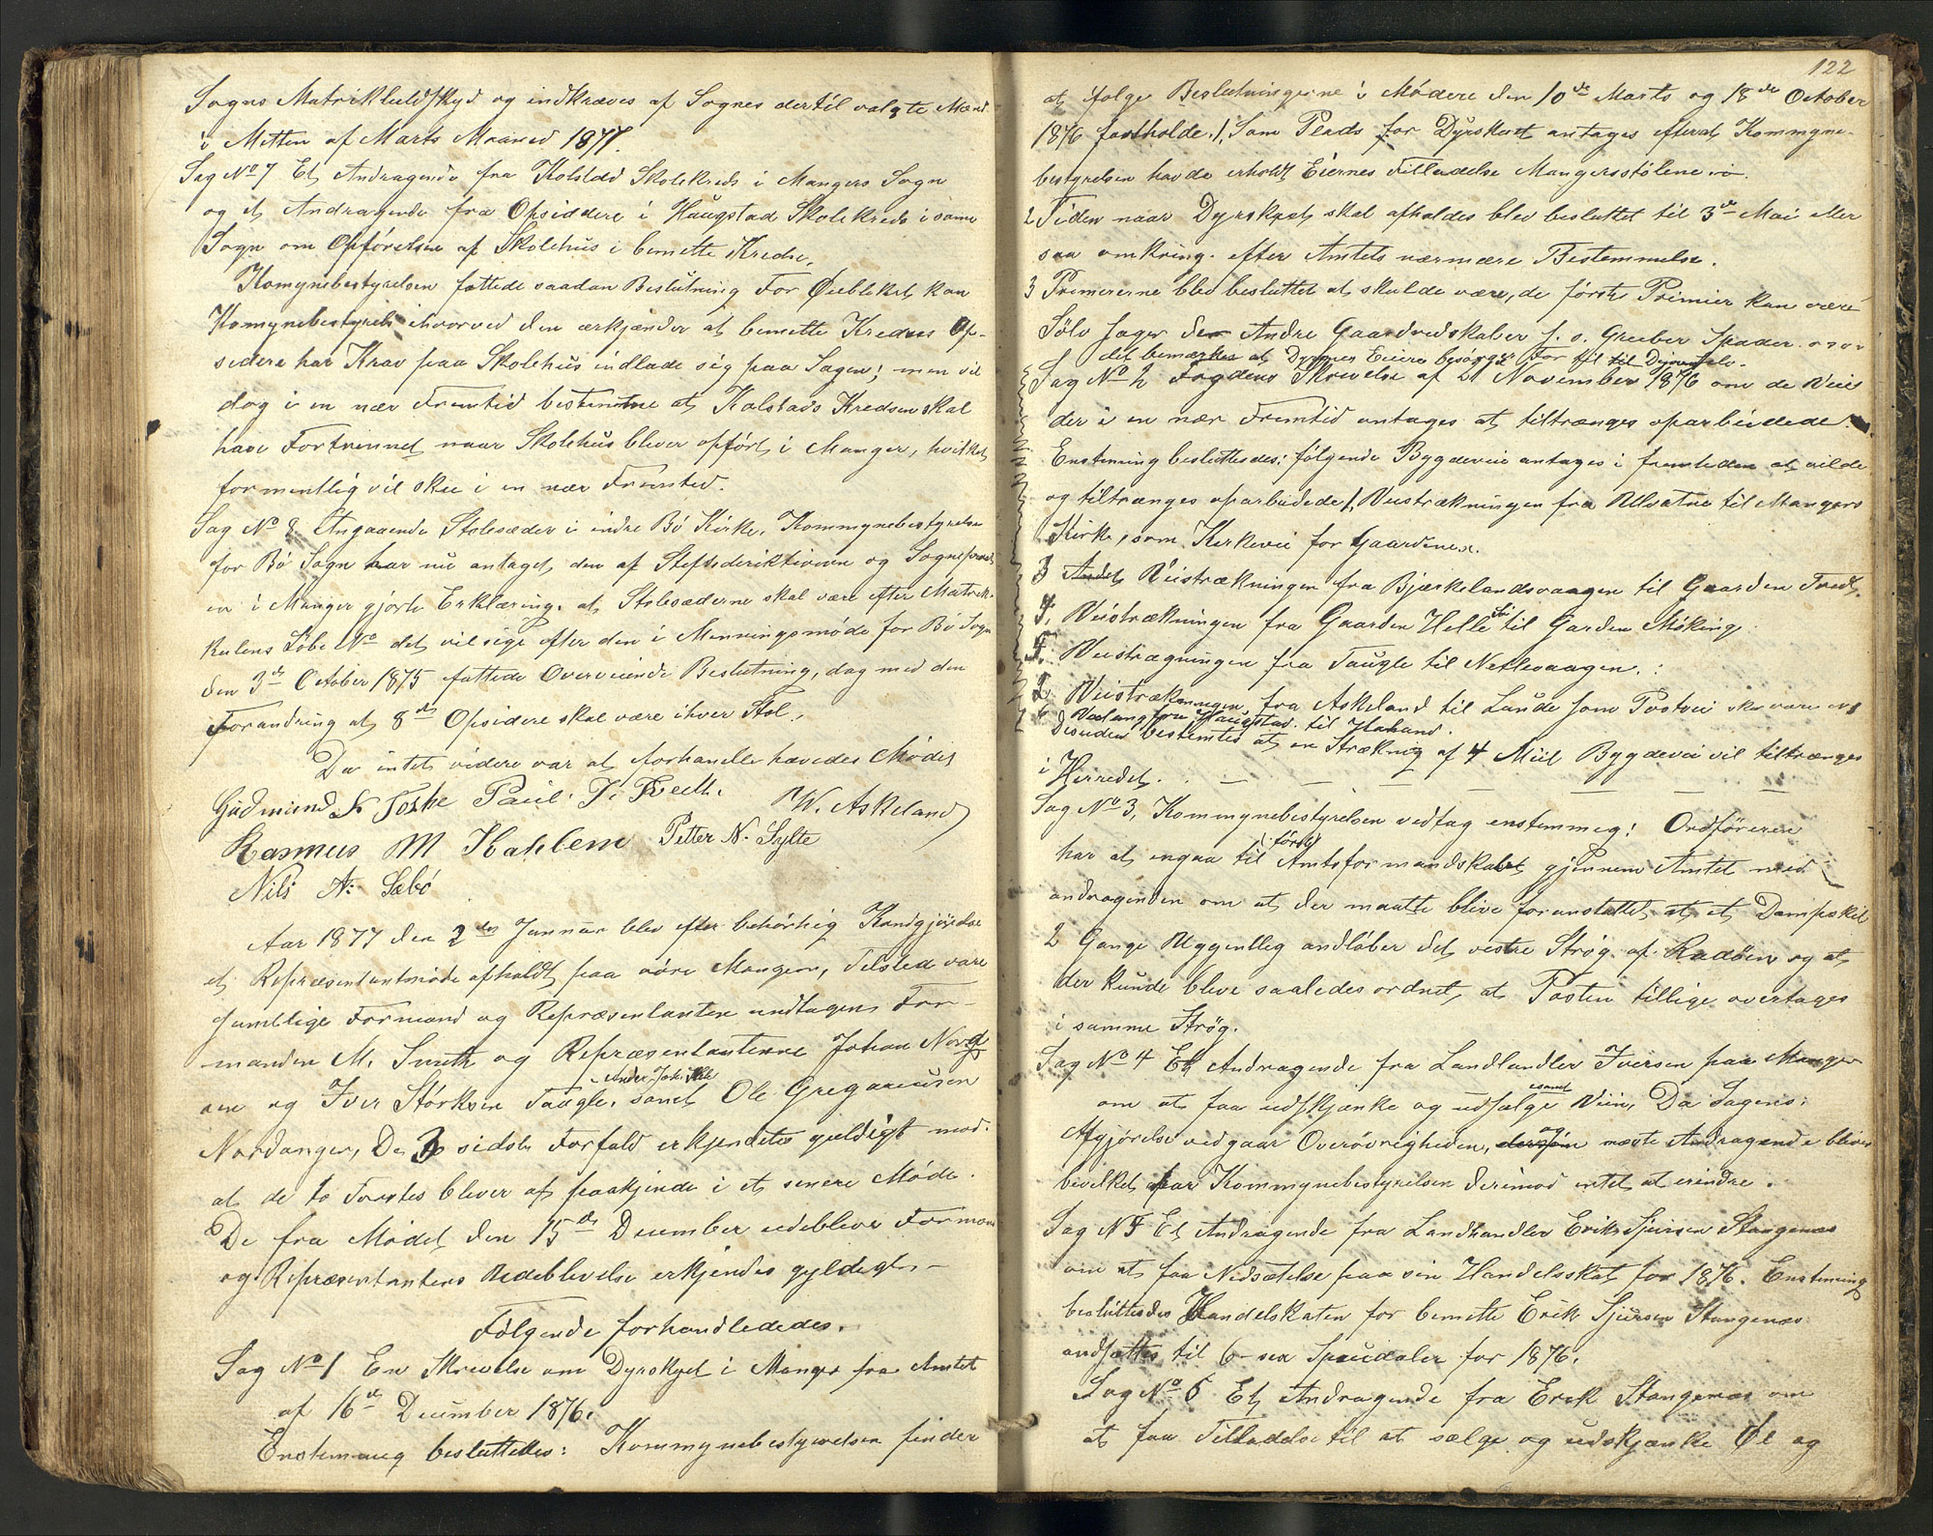 Sogns Matrikkuldskyd og indkræves af Sognes dertil valgte Mænd
i Mitten af Marts Maaned 1877.
Sag No 7 Et Andragende fra Kolstad Skolekreds i Mangers Sogn
og et Andragende fra Opsiddere i Haugstad Skolekreds i samme
Sogn om Opførelse af Skolehus i bemelte Kredse.
Komynebestyrelsen fattede saadan Beslutning For Øieblikket kan
Komynebestyrels ihvorvel den erkjænder at bemelte Kredses Op-
sidere har Krav paa Skolehus indlade sig paa Sagen; men vil
dog i en nær Fremtid bestemme at Kolstads Kredsen skal
have Fortrinnet naar Skolehus bliver opført i Manger, hvilket
formentlig vil skee i en nær Fremtid.
Sag No 8 Angaaende Stolesæder i indre Bø Kirke. Kommynebestyrelse
for Bø Sogn har nu antaget den af Stefsdirektiven og Sognepræst
en i Manger gjorte Erklæring, at Stolesæderne skal være efter Matrik-
kulens Løbe No det vil sige efter den i Menningsmøde for Bø Sogn
den 3de October 1875 fattede Overveiende Beslutning, dog med den
Forandring at 8de Opsidere skal være ihver Stol.
Da intet videre var at forhandle hævedes Mødet
Gudmund S Toske Paul J. Tvedt. W. Askeland
Rasmus M Kahlem Petter N. Sylte
Nils A: Sæbø
Aar 1877 den 2den Januar blev efter behørhig Kundgjørelse
et Repræsentantmøde afholdt paa øvre Mangern, Tilsted vare
samtlige Formænd og Repræsentantere undtagen For-
manden M. Smith og Repræsentanterne Johan Nord
ane og Iver Størksen Taugle, Anders Joh: samt Ole Gregoriusen
Nordanger, De 3 sidste Forfald erkjendtes gyldigt mod.
at de to Første bliver at paakjende i et senere Møde.
De fra Mødet den 15de December udeblevne Formænd
og Repræsentanters Udeblivelse erkjendes gyldigt. –
Følgende forhandledes.
Sag No 1 En Skrivelse om Dyrskuet i Manger fra Amtet
af 16de December 1876.
Enstemmig besluttedes: Kommynebestyrelsen finder
122
at følge Beslutningerne i Mødere den 10de Marts og 18de October
1876 fastholde 1, Som Plads for Dyrskuet antages efterat Kommyne-
bestyrelsen havde erholdt Eiernes Tilladelse Mangersstølene
2 Tiden naar Dyrskuet skal afholdes blev besluttet til 3de Mai eller
saa omkring. efter Amtets nærmere Bestemmelse.
3 Premierne blev besluttet at skulde være, de første Primier kan være
Sølv sager de Andre Gaardredskaber s. s. Greeber Spader o s v
det bemærkes at Dyrenes Eiere besørger For til til Dyrene selv.
Sag No 2 Fogdens Skrivelse af 21 November 1876 om de Veie
der i en nær Fremtid antages at tiltrænges oparbeidede.
Enstemmig besluttedes: følgende Bygdeveie antages i fremtiden at vilde
og tiltrænges oparbeidede 1, Veistrækningen fra Ulvatne til Mangers
Kirke, som Kirkevei for Gaardene.
3 Andet Veistrækningen fra Bjørkelandsvaagen til Gaarden Tvedt.
4, Veistrækningen fra Gaarden Helle til Garden Møking.
5. Veistrægningen fra Taugle til Netlevaagen.
2 Veistrækningen fra Askeland til Lunde som Postvei
fra Haugstad til Haland.
Desuden bestemtes at en Strækning af 4 Miil Bygdevei vil tiltrænges
i Herredet.
Sag No 3, Kommynebestyrelsen vedtag enstemmig: Ordføreren
har at ingaa til første Amtsformandskabet gjennem Amtet med
andragenden om at der maatte blive foranstaltet at et Dampskib
2 Gange Uggentlig andløber det vestre Strøg af Radøen og at
der kunde blive saaledes ordnet, at Posten tillige overtages
i samme Strøg.
Sag No 4 Et Andragende fra Landhandler Iversen paa Manger
om at faa udskjænke og udsælge samt Viin, Da Sagens
Afgjørelse vedgaar Overøvrigheden, og maate Andragende blive
bevilket har Kommynebestyrelsen derimod intet at erindre.
Sag N 5 Et Andragende fra Landhandler Erik Sjursen Stangenæs
om at faa Nedsættelse paa sin Handelsskat for 1876. Enstemmig
besluttedes Handelskaten for bemelte Erik Sjursen Stangenæs
andsættes til 6 – sex Speciedaler for 1876.
Sag No 6 Et Andragende fra Erik Stangenæs om
at faa Tilladelse til at sælge og udskjænke Øl og